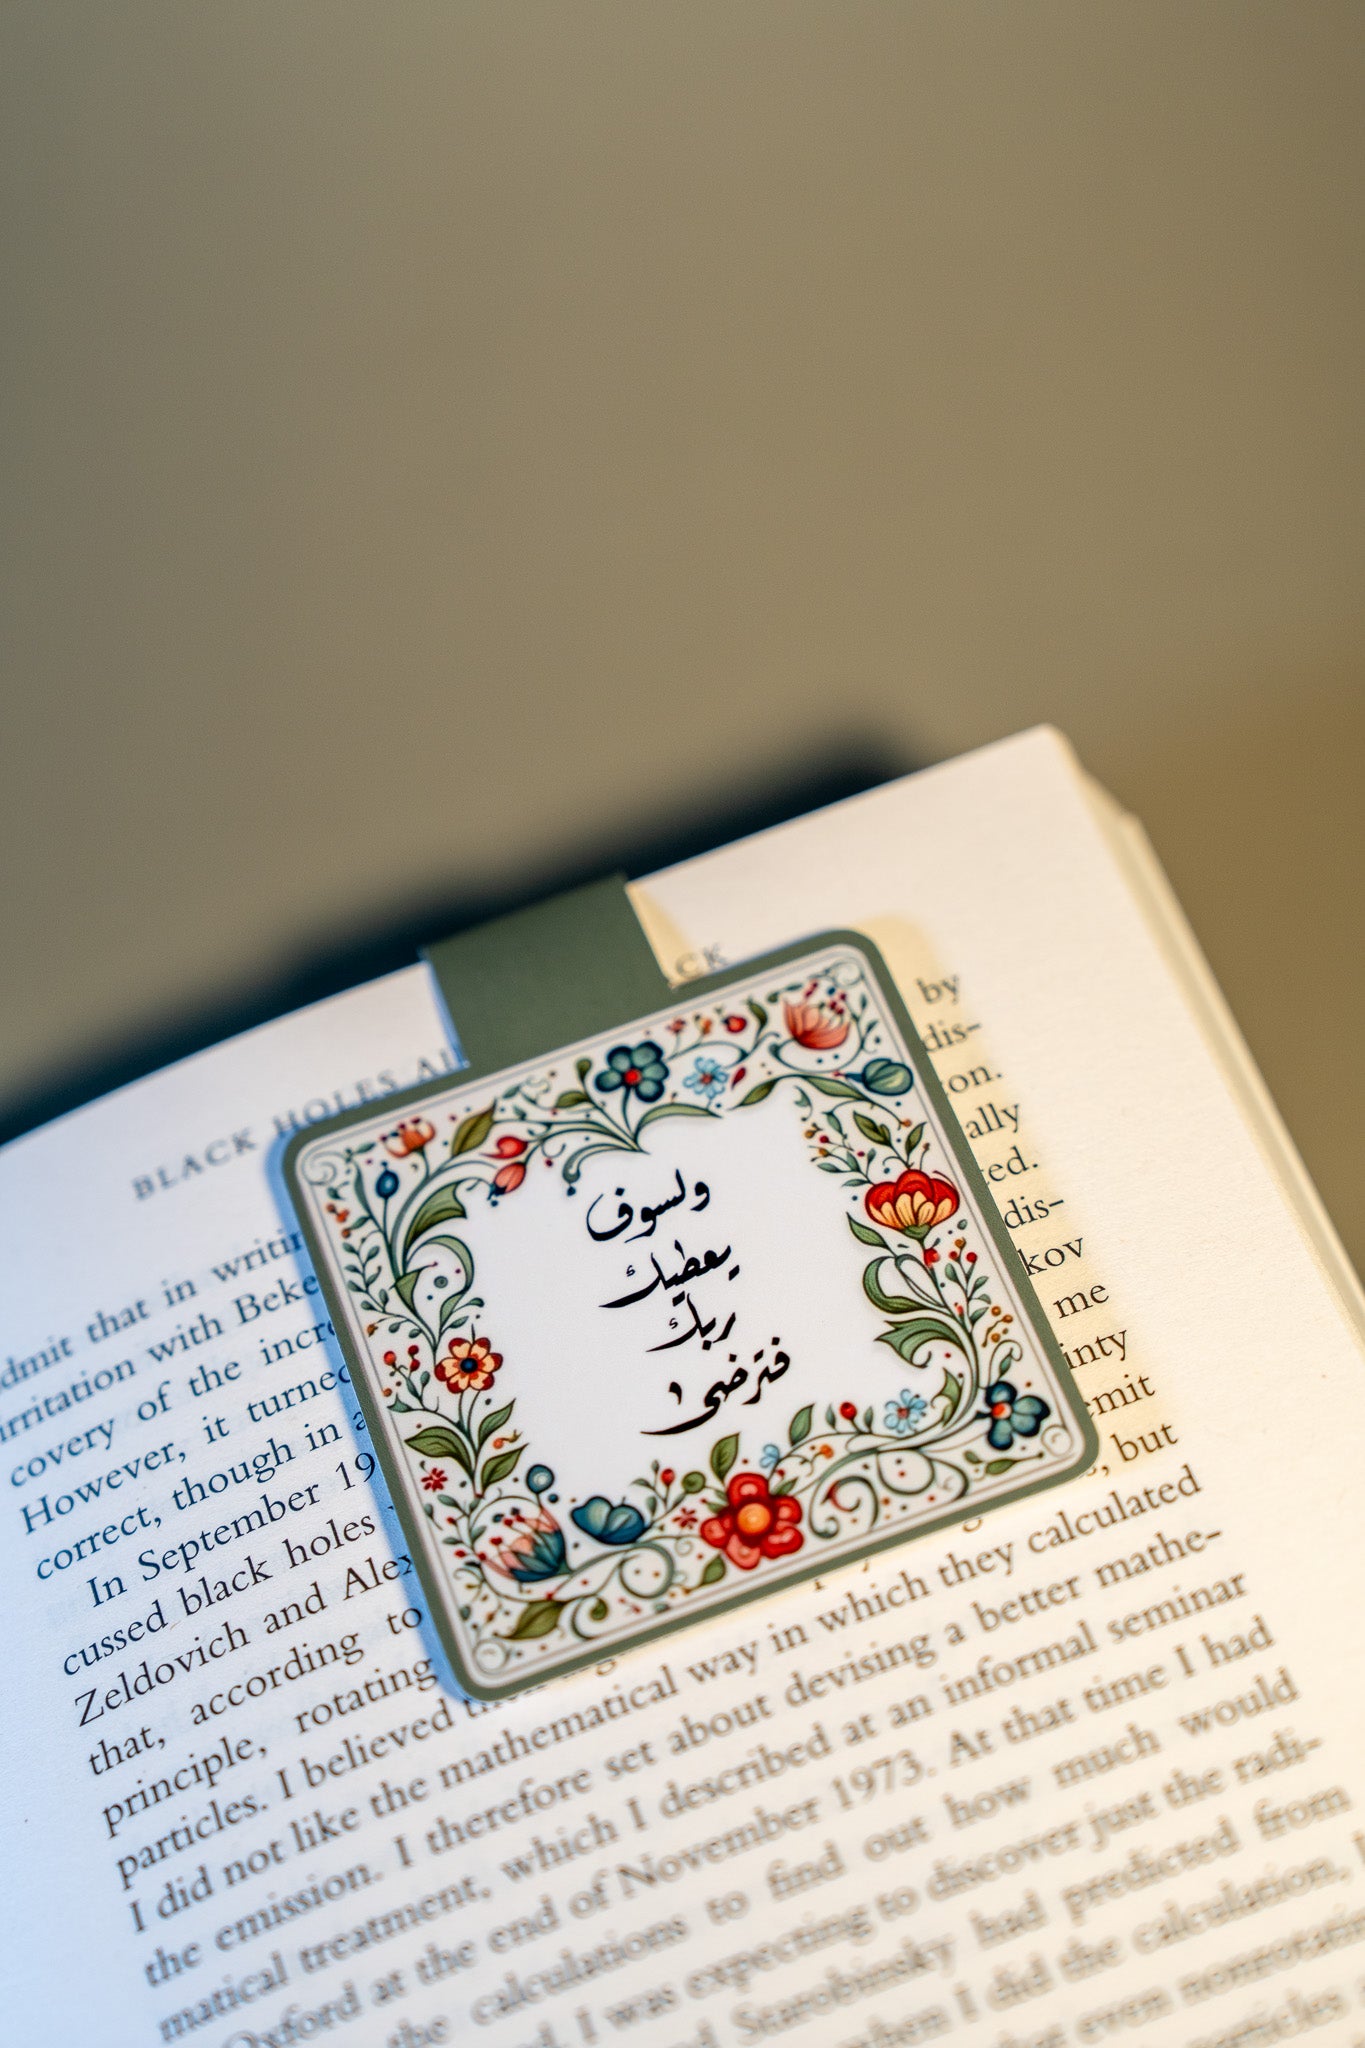 BLACK HOLES AI
CK
ولسوف
يعطيك
ربك
فترضى
by
dis-
on.
ally
ed.
dmit that in writin dis-
irritation with Beke kov
covery of the incre me
However, it turned inty
correct, though in a emit
In September 19 , but
cussed black holes which they calculated
Zeldovich and Alex
that, according to
principle, rotating
particles. I believed
I did not like the mathematical way in which they calculated
the emission. I therefore set about devising a better mathe-
matical treatment, which I described at an informal seminar
Oxford at the end of November 1973. At that time I had
the calculations to find out how much would
I was expecting to discover just the radi-
Starobinsky had predicted from
when I did the calculation,
even nonrotatin
particles